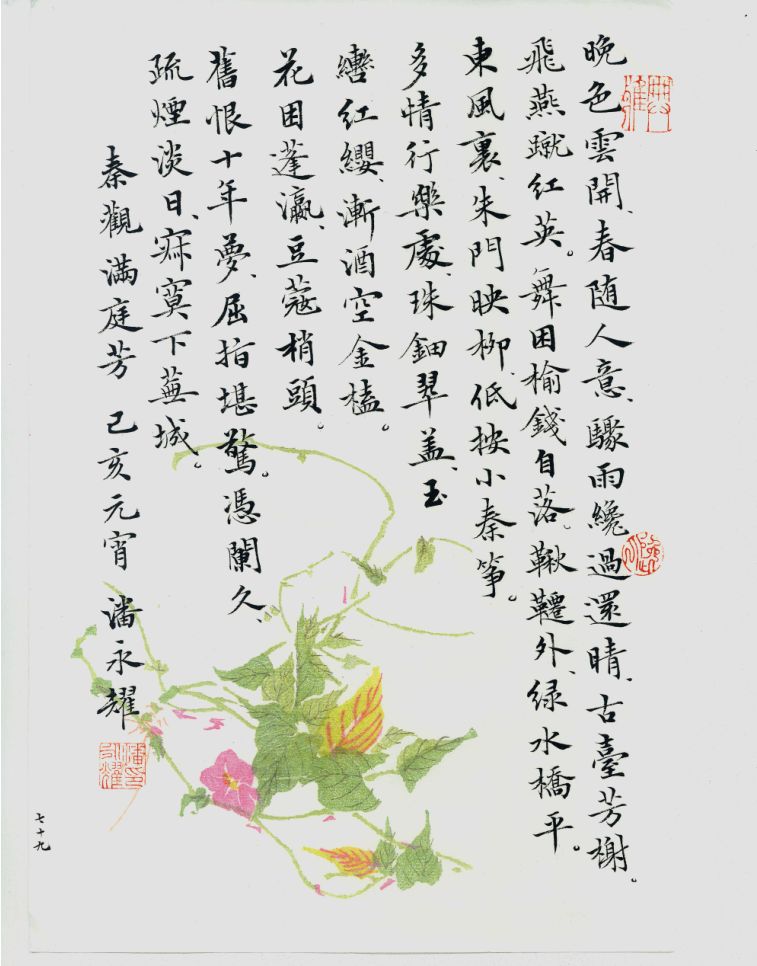 晚色雲開、春随人意、驟雨纔過還晴、古臺芳榭。
飛燕蹴紅英。舞困榆錢自落、鞦韆外、绿水橋平。
東風裏、朱門映柳、低按小秦筝。
多情行樂處、珠鈿翠盖、玉
轡红纓、漸酒空金榼。
花困蓬瀛、豆蔻梢頭。
舊恨十年夢、屈指堪驚。憑闌久、
疏煙淡日、寂寞下蕪城。
秦觀滿庭芳 己亥元宵 潘永耀
七十九